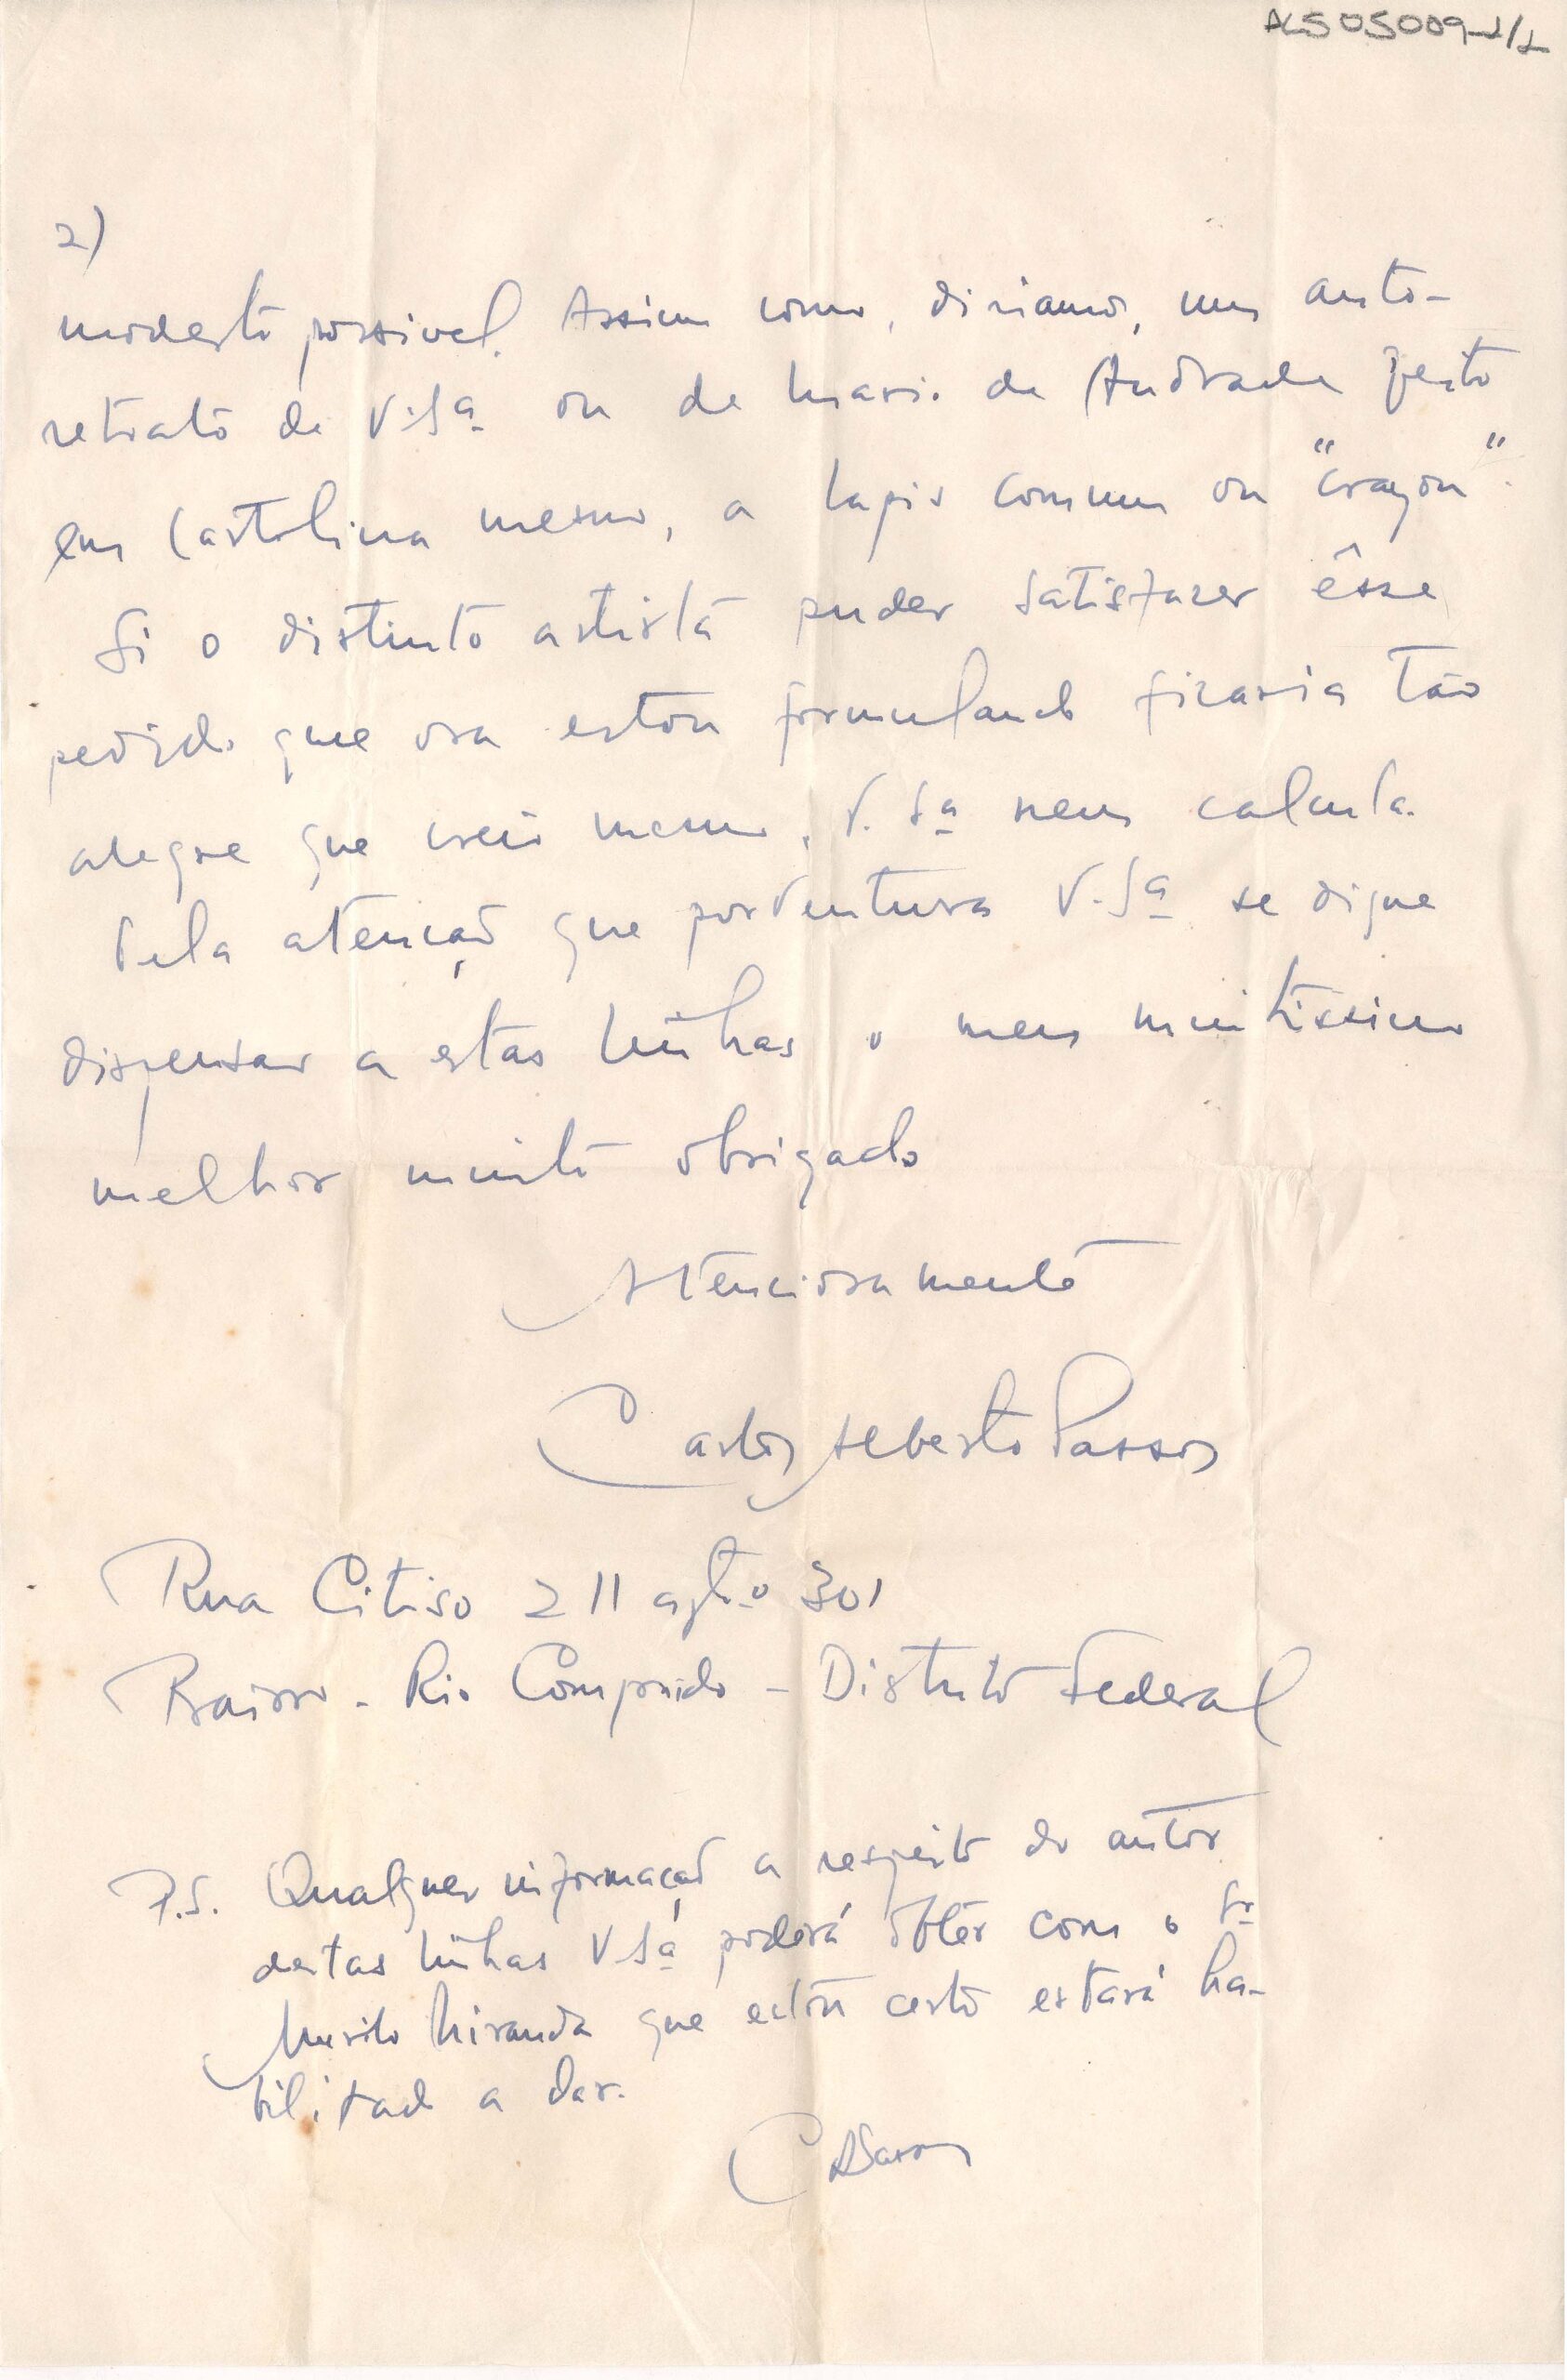 ALS 05009-2/2
2)
modesto possivel. Assim como, diriamos, um auto-
retrato de V.Sª ou de Mario de Andrade feito
em cartolina mesmo, a lapis commum ou "crayon".
Si o distinto artista puder satisfazer êsse
pedido que ora estou formulando ficaria tão
alegre que creio mesmo, V. Sª nem calcula.
Pela atenção que porventura V.Sª se digne
dispensar a estas linhas o meu muitissimo
melhor muito obrigado
Atenciosamente
Carlos Alberto Passos
Rua Citiso 211 aptº 301
Bairro - Rio Comprido - Distrito Federal
P.S. Qualquer informação a respeito do autor
destas linhas V.Sª poderá obter com o Sr
Murilo Miranda que estou certo estará ha-
bilitado a dar.
CAPassos